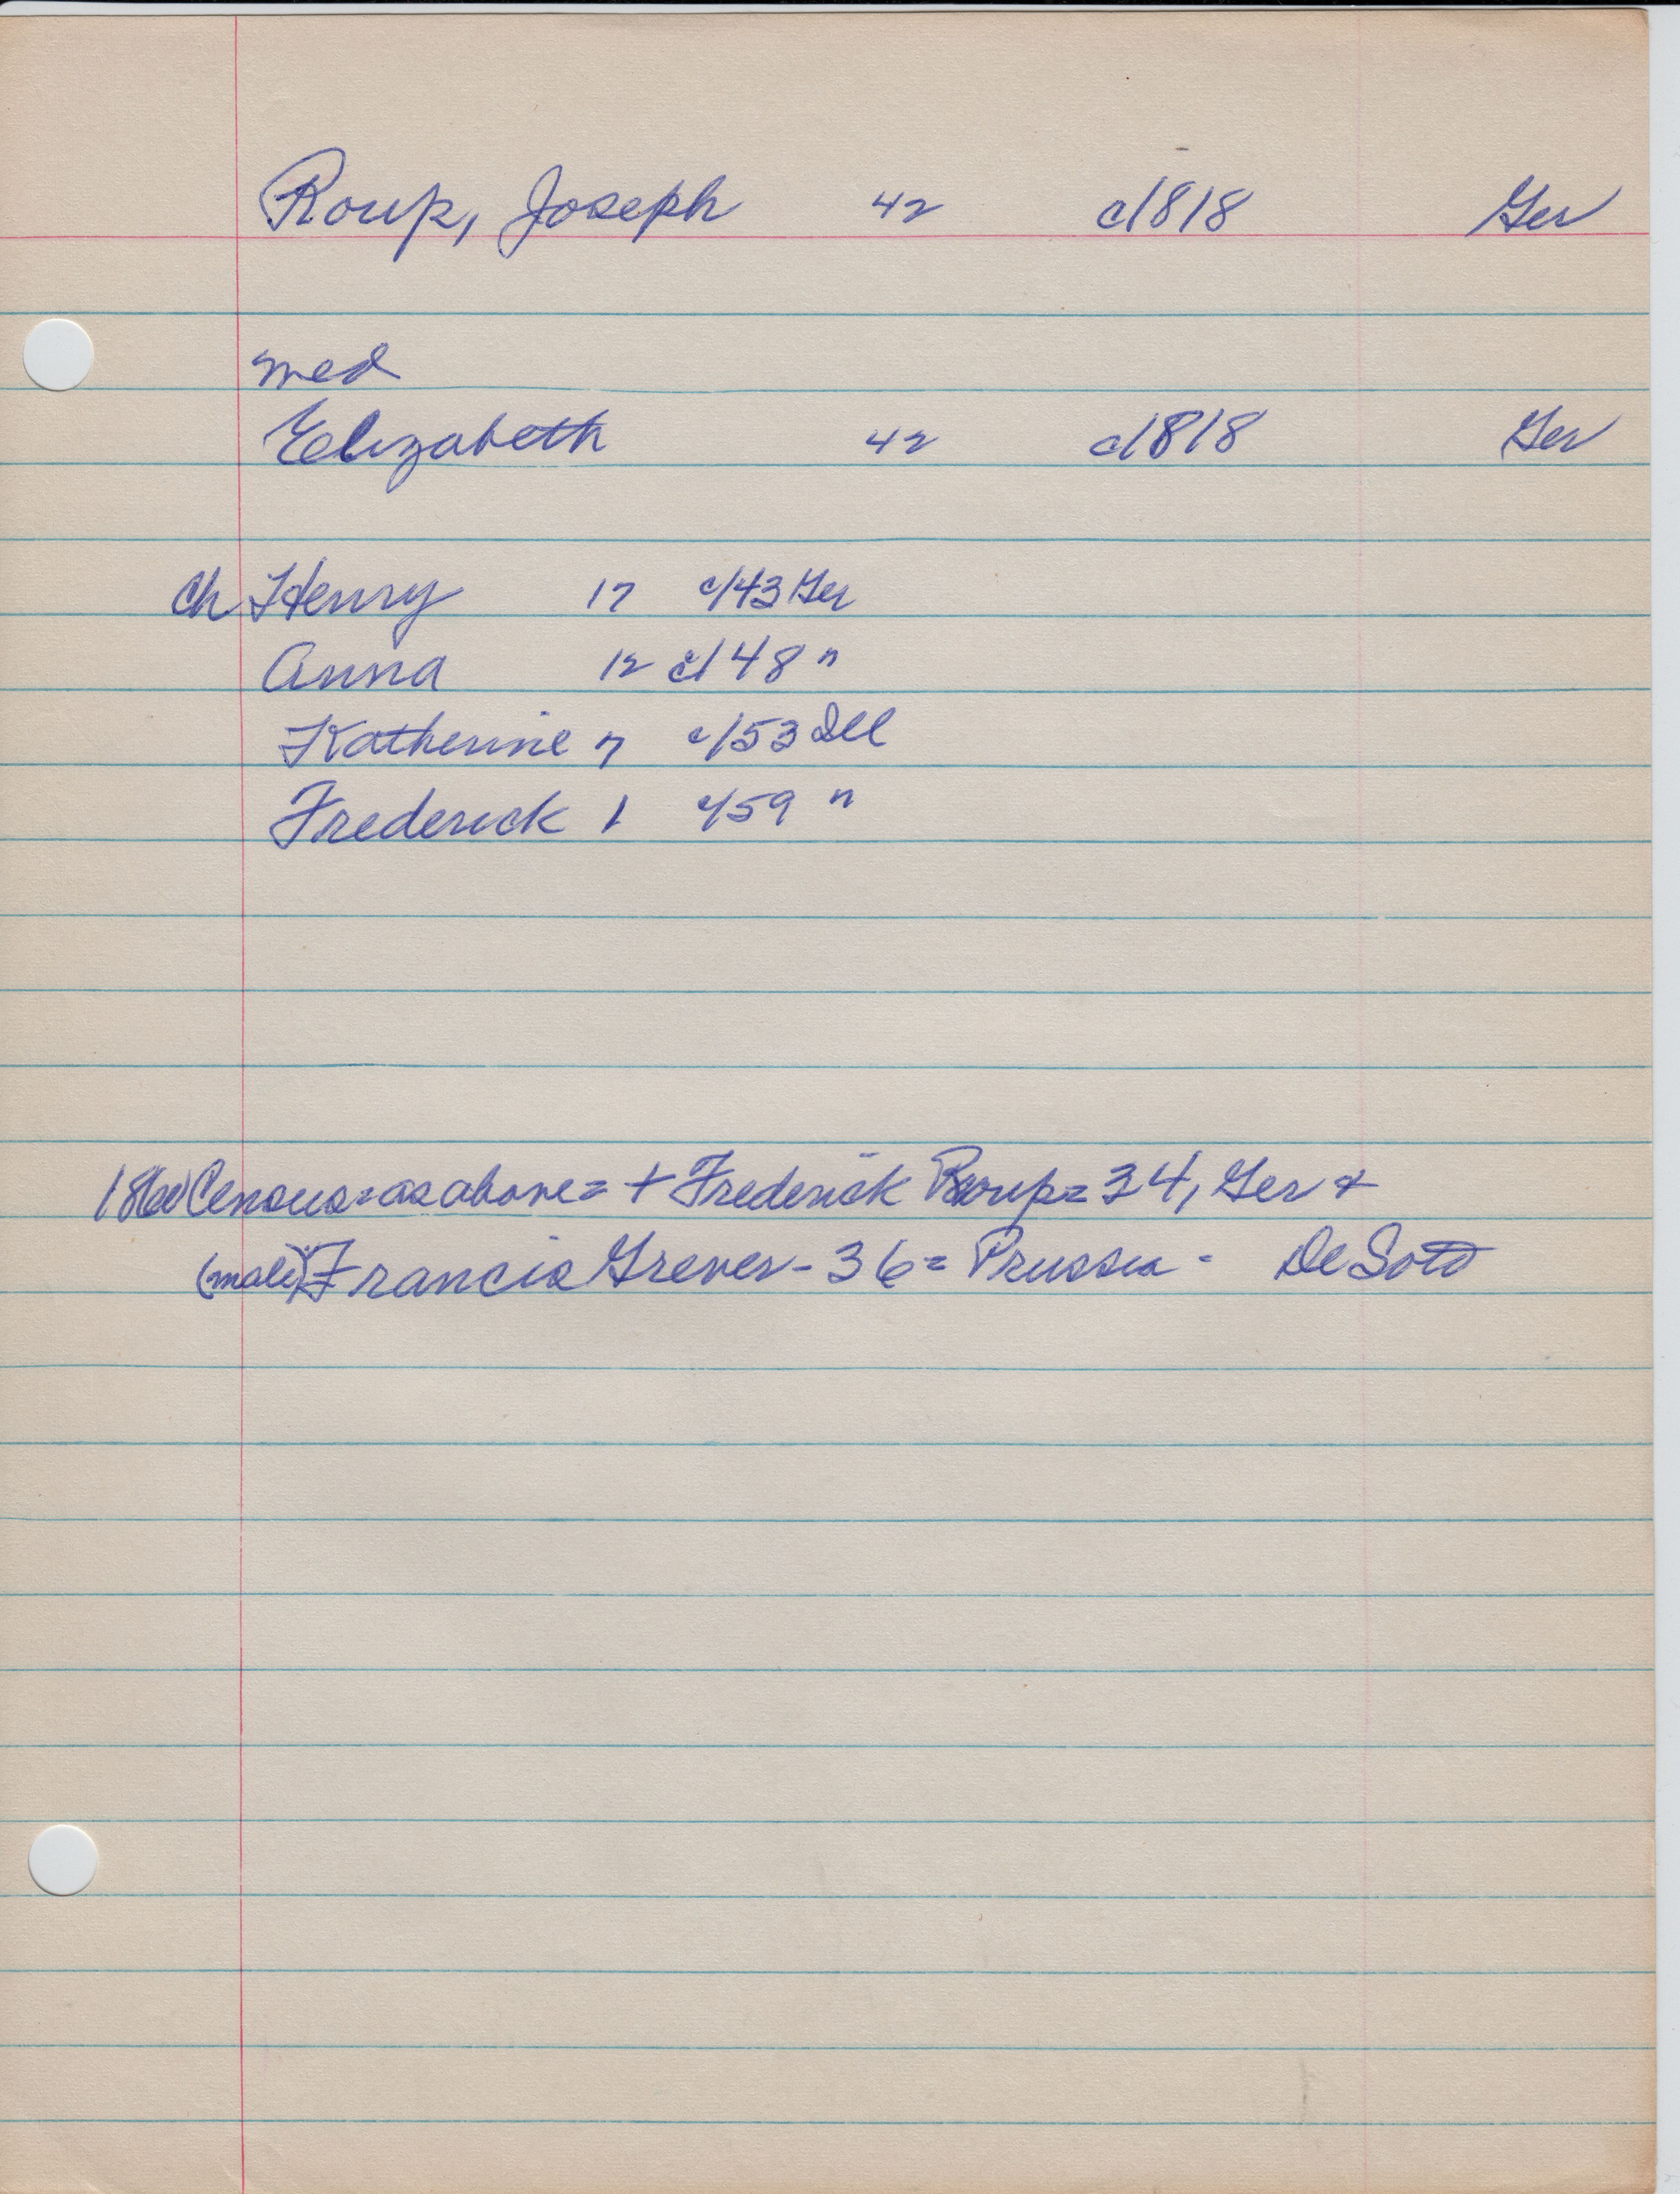 Roup, Joseph 42 c1818 Ger
med
Elizabeth 42 c1818 Ger
Ch Henry 17 c/43 Ger
Anna 12 c/48 "
Katherine 7 c/53 Ill
Frederick 1 c/59 "
1860 Census = as above = + Frederick Roup = 34, Ger +
(male) Francis Grever - 36 = Prussia - De Soto